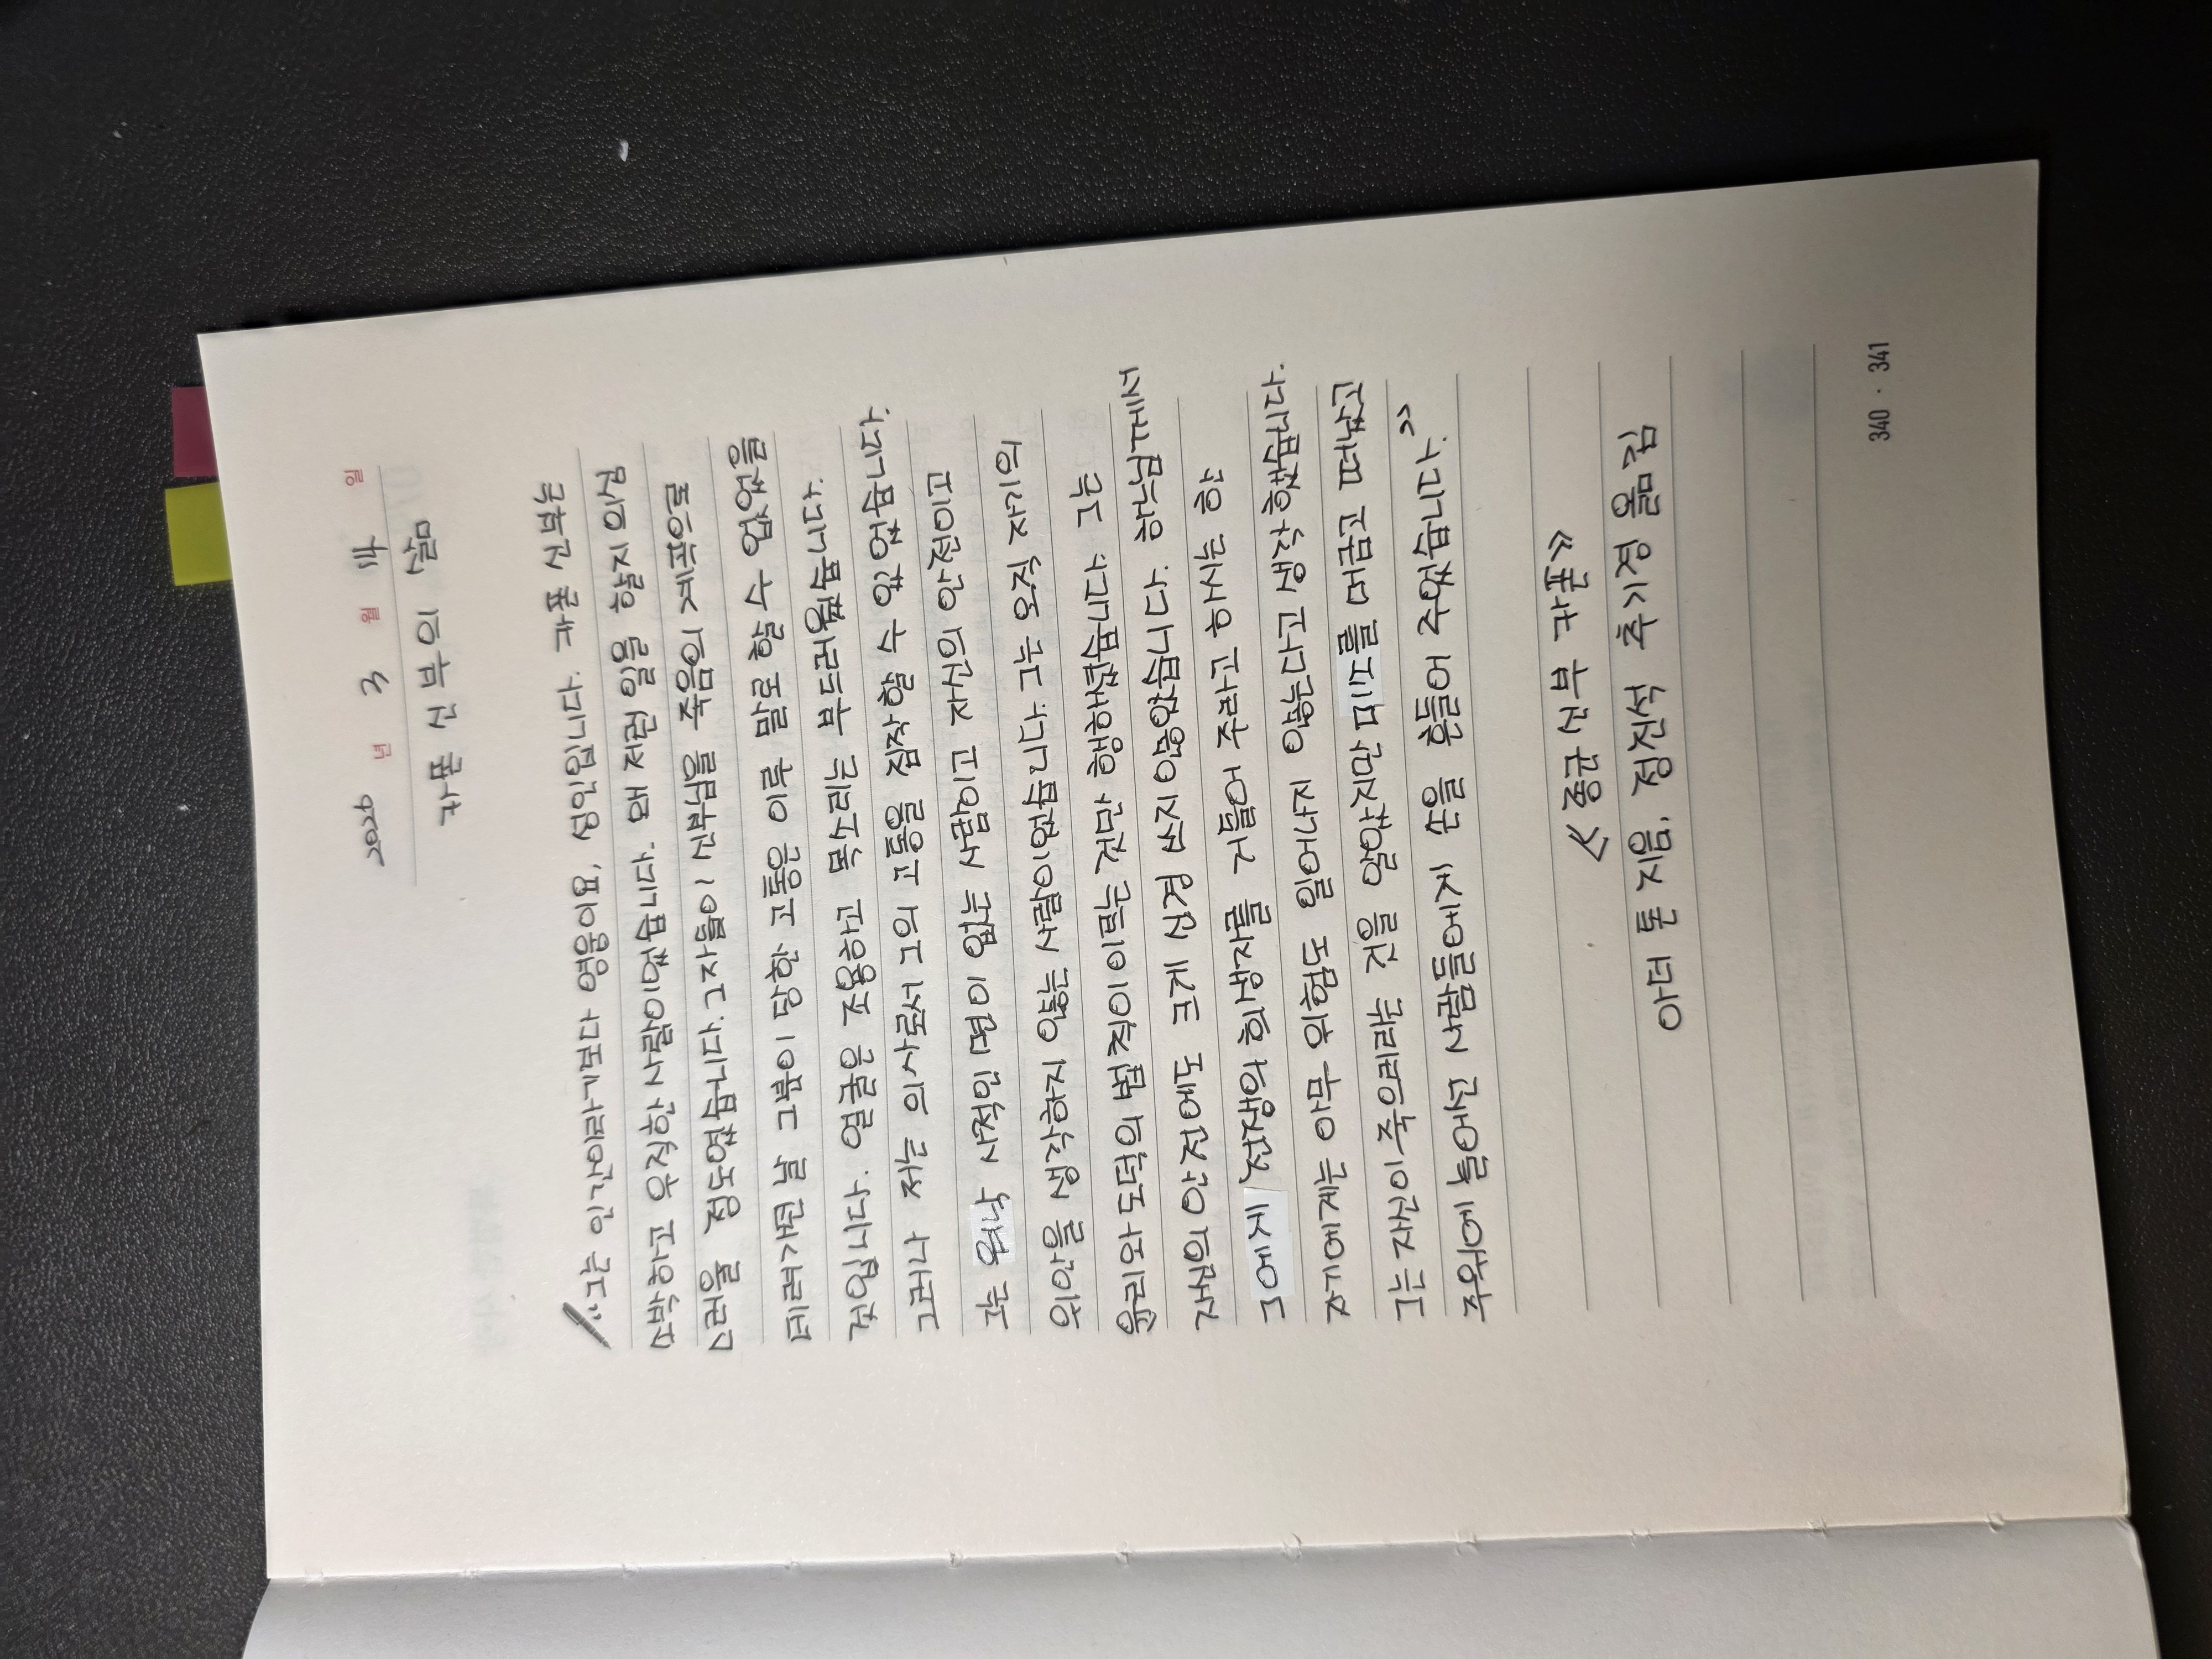 2026 년 3 월 14 일
카폰 신부의 삶
"그는 인간이라기보다 영웅이요, 성인입니다. 카폰 신부는
소박하고 우직한 사람이었습니다. 왜 저런 일을 할지 의심
스러울 정도였습니다. 그자들이 신부님을 죽음의 계곡으로
데려가던 날 그분이 당한 고통은 이루 말로 할 수 없었을
것입니다. 얼굴은 조용하고 목소리는 부드러웠습니다.
그러나 저는 의사로서 그의 고통을 짐작할 수 있었습니다.
그는 워낙 사적인 면이 없는 사람이고 자신의 안전이고
위안을 생각하지 않는 사람이었습니다. 그는 오직 자기의
윤리와 도덕의 법칙이 이르는 것만 행하였습니다. 그는
자신의 안전에도 크게 신경 쓰지 않았습니다. 하느님께서
그에게 전쟁의 희생자를 거들어 주라고 하시는 한
자기에게는 아무 위험도 일어나지 않는다고 생각했습니다.
그는 자신이 죽으리라는 것을 알았지만 미소를 머금고 떠났고
주위에 늘어선 사람들에게 손을 흔들어 주었습니다."
《종군 신부 카폰》
아더 톤 지음, 정진석 추기경 옮김
340 · 341